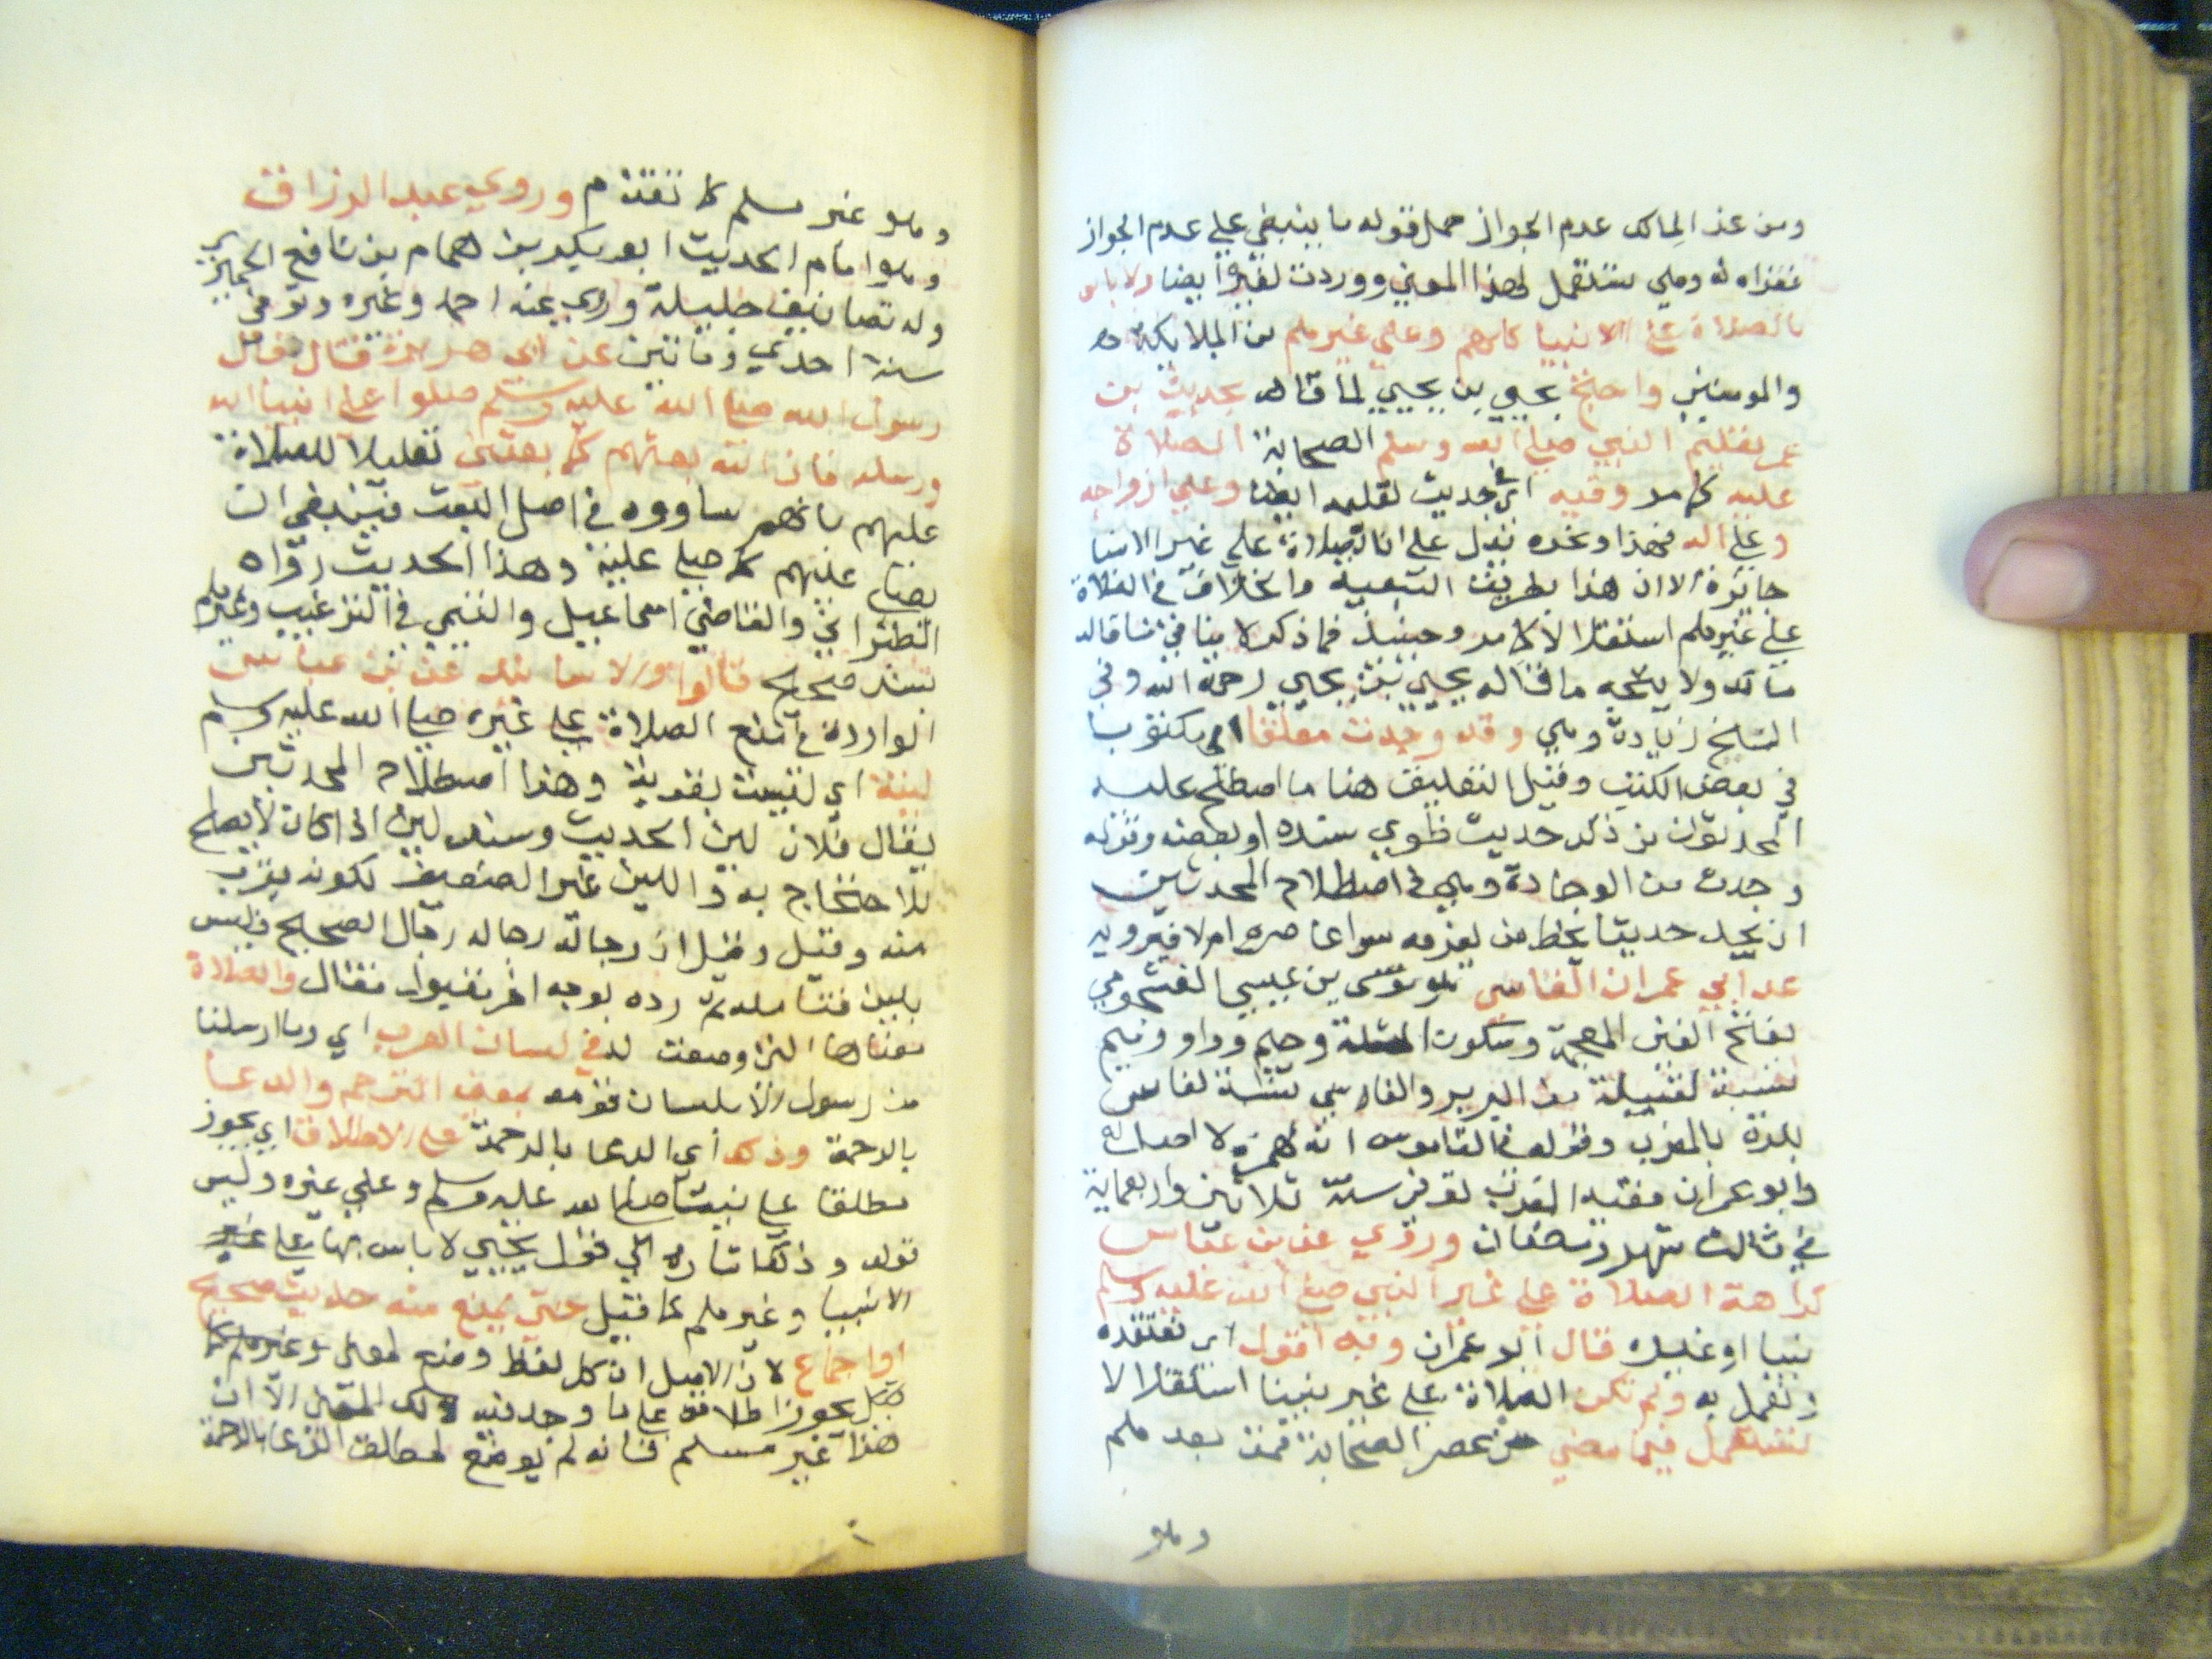 ومن عزا لمالك عدم الجواز حمل قوله ما ينبغي علي عدم الجواز
فعزاه له وهي تستعمل لهذا المعني ووردت لغيره أيضا ولا باس
بالصلاة علي الانبيا كلهم وعلي غيرهم من الملايكة
والمومنين واحتج يحيي بن يحيي لما قاله بحديث بن
عمر بتعليم النبي صلي الله وسلم الصحابة الصلاة
عليه كما مر وفيه أي في حديث تعليمه ايضا وعلي ازواجه
وعلي اله فهذا ونحوه يدل علي ان الصلاة علي غير الانبيا
جائزة الا ان هذا بطريق التبعية والخلاف في الصلاة
علي غيرهم استقلالا كما مر وحينيذ فما ذكر لا ينافي ما قاله
مالك ولا يتجه ما قاله يحيي بن يحيي رحمه الله وفي
النسخ زيادة وهي وقد وجدت معلقا اي مكتوبا
في بعض الكتب وقيل التعليق هنا ما اصطلح عليه
المحدثون من ذكر حديث طوي سنده او بعضه وقوله
وجدت من الوجادة وهي في اصطلاح المحدثين
ان يجد حديثا بخط من يعرفه سوا عاصره ام لا فيرويه
عن ابي عمران الفاسي هو موسي بن عيسي الغفجومي
بفتح الغين المعجمة وسكون وجيم وواو وميم
نسبة لقبيلة من البربر والفاسي نسبة لفاس
بلدة بالمغرب وقوله في القاموس انه بهمزة لا اصل له
وابو عمران فقيه المغرب توفي سنة ثلاثين واربعماية
في ثالث شهر رمضان وروي عن بن عباس
كراهة الصلاة علي غير النبي صلي الله عليه وسلم
نبيا او غيره قال ابو عمران وبه اقول اي نعتقده
ونعمل به ولم تكن الصلاة علي غير نبينا استقلالا
تستعمل فيما مضي من عصر الصحابة فمن بعدهم
وهو
وهو غير مسلم كما تقدم وروي عبد الرزاق
وهو امام الحديث ابو بكر بن همام بن نافع الحميري
وله تصانيف جليلة وروي عنه احمد وغيره وتوفي
سنة احدي ومائتين عن ابي هريرة قال قال
رسول الله صلي الله عليه وسلم صلوا علي انبيا الله
ورسله فان الله بعثهم كما بعثني تعليلا للصلاة
عليهم بانهم ساووه في اصل البعث فينبغي ان
يصلي عليهم كما صلي عليه وهذا الحديث رواه
الطبراني والقاضي اسماعيل والتيمي في الترغيب وغيرهم
بسند صحيح قالوا والاسانيد عن بن عباس
الواردة في منع الصلاة علي غيره صلي الله عليه وسلم
لينة اي ليست بقوية وهذا اصطلاح المحدثين
يقال فلان لين الحديث وسنده لين اذا كان لا يصلح
للاحتجاج به واللين غير الضعيف لكونه يقرب
منه وقيل وقيل ان رجاله رجاله رجال الصحيح فليس
بلين فتامله ثم رده بوجه اخر فقال والصلاة
معناها الذي وضعت له في لسان العرب اي وما ارسلنا
من رسول الا بلسان قومه بمعني الترحم والدعا
بالرحمة وذلك أي الدعا بالرحمة علي الاطلاق اي يجوز
مطلقا علي نبينا صلي الله عليه وسلم وعلي غيره وليس
قوله وذلك اشاره الي قول يحيي لا باس بها علي غير
الانبيا وغيرهم كما قيل حتي يمنع منه حديث صحيح
او اجماع لان الاصل ان كل لفظ وضع لمعني
قيل يجوز اطلاقه علي ما وجد فيه ذلك المعني الا ان
هذا غير مسلم فانه لم يوضع لمطلق الدعا بالرحمة